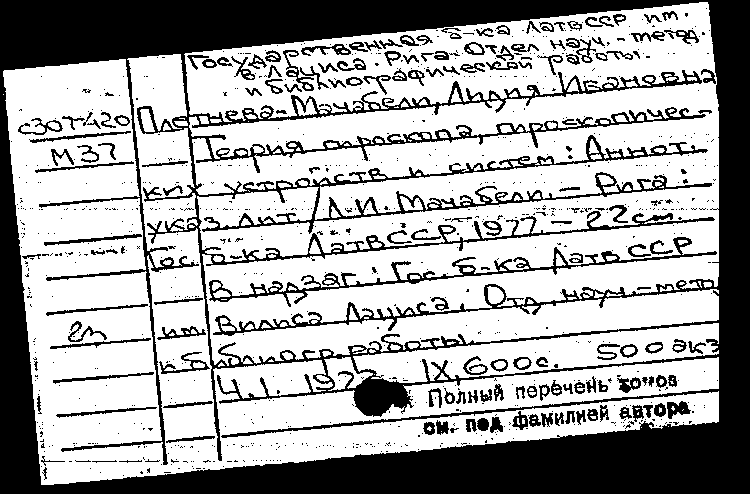 Государственная б-ка ЛатвССР им.
В. Лациса. Рига. Отдел науч.-метод.
и библиографической работы.
с307420 Плетнева-Мачабели, Лидия Ивановна
М37 Теория гироскопа, гироскопичес-
ких устройств и систем: Аннот.
указ. лит. / Л.И. Мачабели. - Рига:
Гос. б-ка ЛатвССР, 1977 - 22 см.
В надзаг.: Гос. б-ка Латв ССР
им. Вилиса Лациса. Отд. науч.-метод
и библиогр. работы.
Ч.1. 1977 IX, 600с. 500 экз
Полный перечень томов
см. под фамилией автора